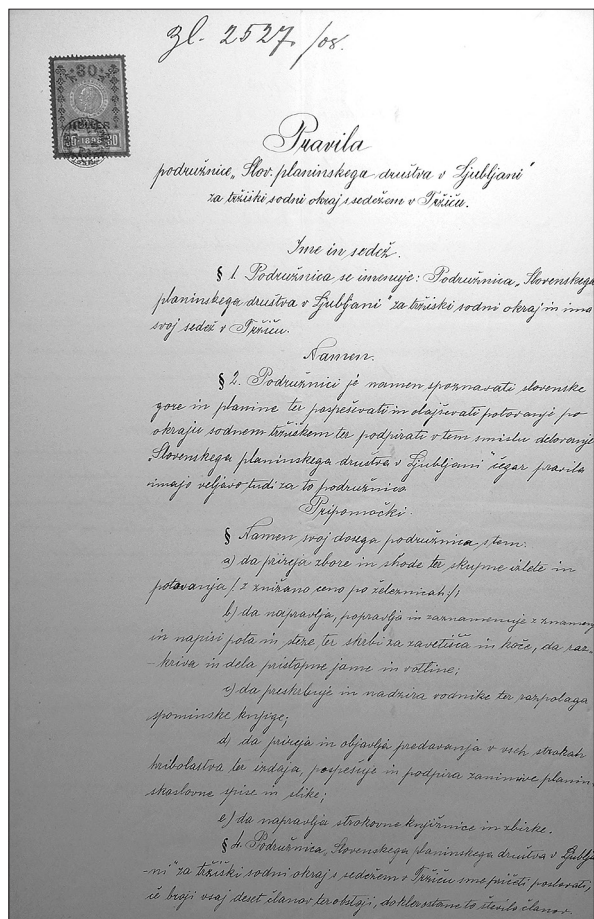 Zl. 2527/08.
30
1898
Pravila
podružnice „Slov. planinskega društva v Ljubljani“
za tržiški sodni okraj s sedežem v Tržiču.
Ime in sedež.
§ 1. Podružnica se imenuje: Podružnica „Slovenskega
planinskega društva v Ljubljani“ za tržiški sodni okraj in ima
svoj sedež v Tržiču.
Namen.
§ 2. Podružnici je namen spoznavati slovenske
gore in planine ter pospeševati in olajševati potovanje po
okraju sodnem tržiškem ter podpirati v tem smislu delovanje
„Slovenskega planinskega društva v Ljubljani“ čegar pravila
imajo veljavo tudi za to podružnico
Pripomočki.
§ Namen svoj dosega podružnica s tem:
a) da prireja zbore in shode ter skupne izlete in
potovanja /: z znižano ceno po železnicah :/;
b) da napravlja, popravlja in zaznamenuje z znameni
in napisi pota in steze, ter skrbi za zavetišča in koče, da raz-
-kriva in dela pristopne jame in votline;
c) da preskrbuje in nadzira vodnike ter razpolaga
spominske knjige;
d) da prireja in objavlja predavanja v vseh strokah
hribolastva ter izdaja, pospešuje in podpira zanimive planin-
skoslovne spise in slike;
e) da napravlja strokovne knjižnice in zbirke.
§ 4. Podružnica „Slovenskega planinskega društva v Ljublja
-ni“ za tržiški sodni okraj s sedežem v Tržiču sme pričeti poslovati,
če broji vsaj deset članov ter obstoji, dokler ostane to število članov.